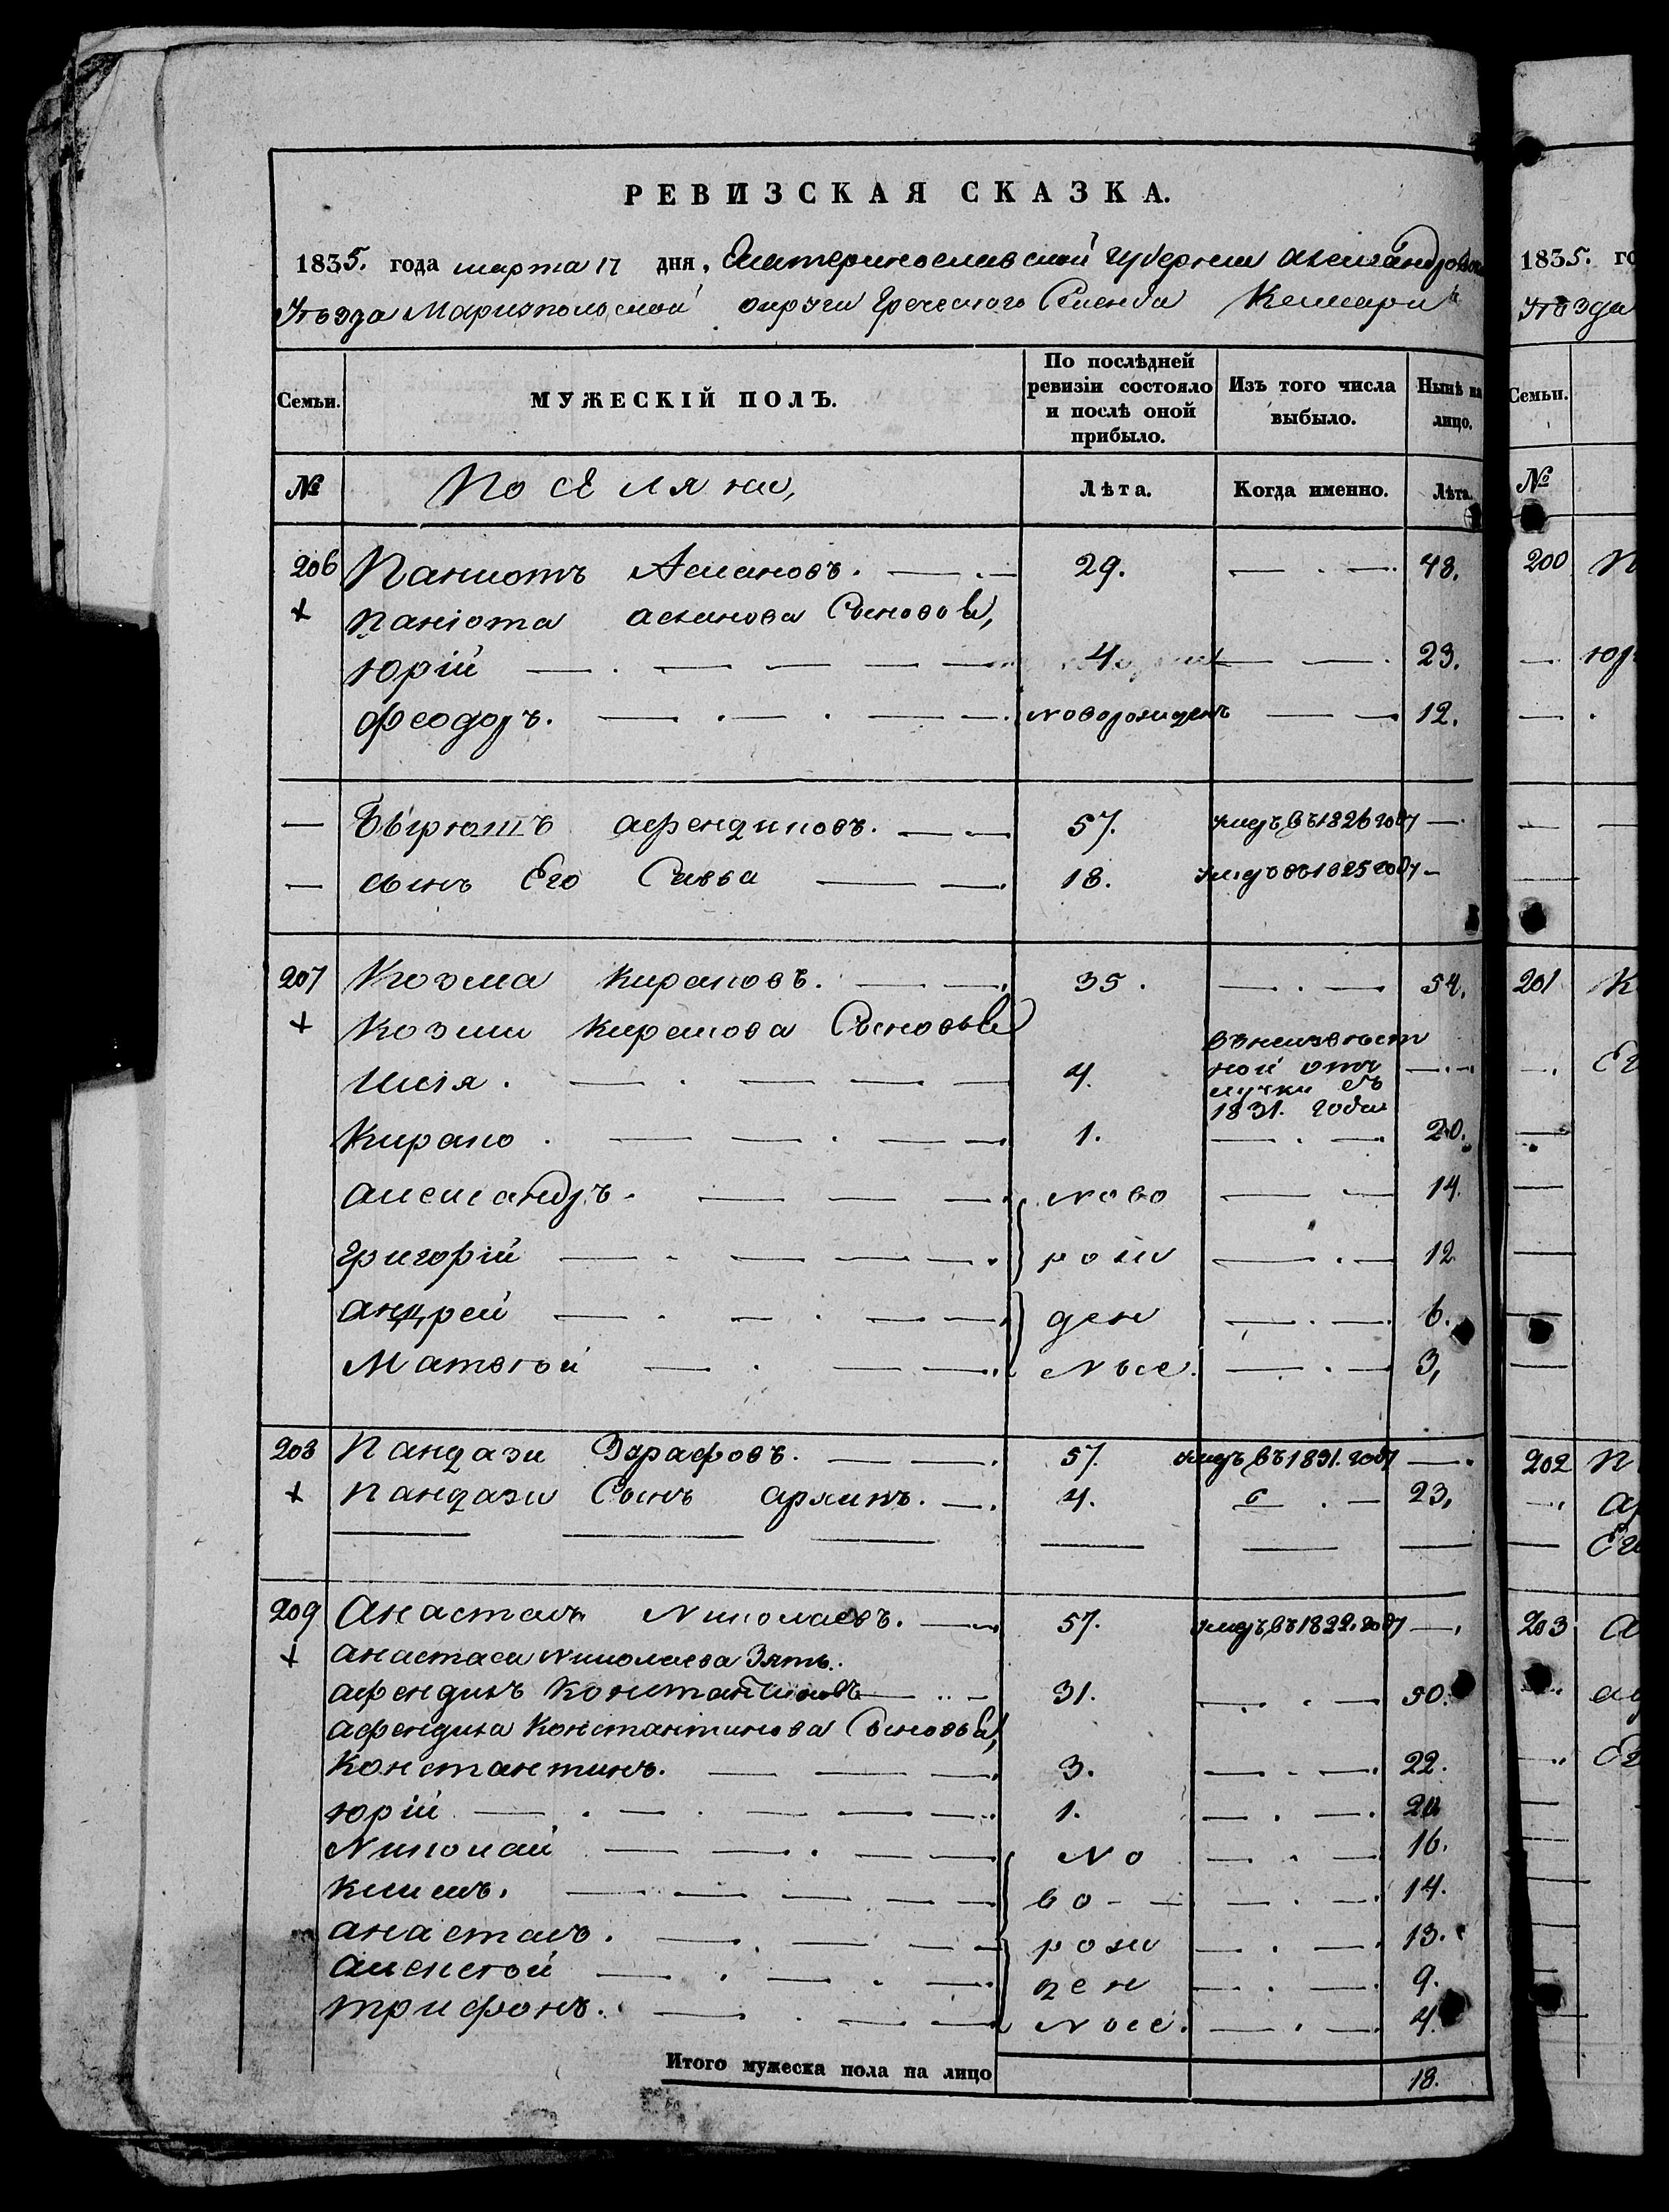 РЕВИЗСКАЯ СКАЗКА.
1835. года марта 17 дня, Екатеринославской губернии александровскаго
Уѣзда Мариупольской округи Греческого Селенія
Семьи. МУЖЕСКІЙ ПОЛЪ. По послѣдней ревизіи состояло и послѣ оной прибыло. Изъ того числа выбыло. Нынѣ на лицо.
№ Поселяни, Лѣта. Когда именно. Лѣта.
206 Паниотъ Аслановъ. 29. 48.
+ паніота асланова Сыновья,
юрій 4 23.
феодоръ. новорожденъ 12.
— афендиковъ. 57. умеръ въ 1826 году —
— сынъ Его Савва 18. умеръ въ 1825 году —
207 Козма Кираковъ. 35. 54.
+ козми Киракова Сыновья
Илія. 4. въ неизвѣст
ной отлучки съ
1831. года
Кирако. 1. 20.
александръ. ново 14.
григорій рож 12
андрей ден 6.
Матвѣй ные. 3,
208 Пандази Зарафовъ. 57. умеръ въ 1831. году —
+ пандази Сынъ 4. 23,
209 Анастасъ Николаевъ. 57. умеръ въ 1822. году —
+ анастаса Николаева Зять.
афендикъ Константиновъ 31. 50.
афендика Константинова Сыновья,
Константинъ. 3. 22.
юрій 1. 20
Николай но 16.
климъ. во- 14.
анастасъ. рож 13.
алексѣй ден 9.
трифонъ. ные. 4.
Итого мужеска пола на лицо 18.
1835. го
Уѣзда
Семьи.
№
200 П
юр
201 К
Ег
202 П
ар
Ег
203 а
аф
Ег